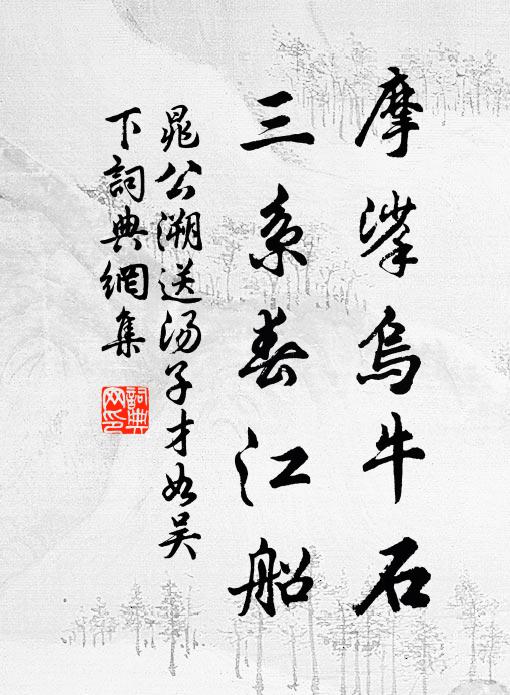 摩挲乌牛石
三系春江船
晁公溯送汤子才如吴
下詞典網集
詞典网印